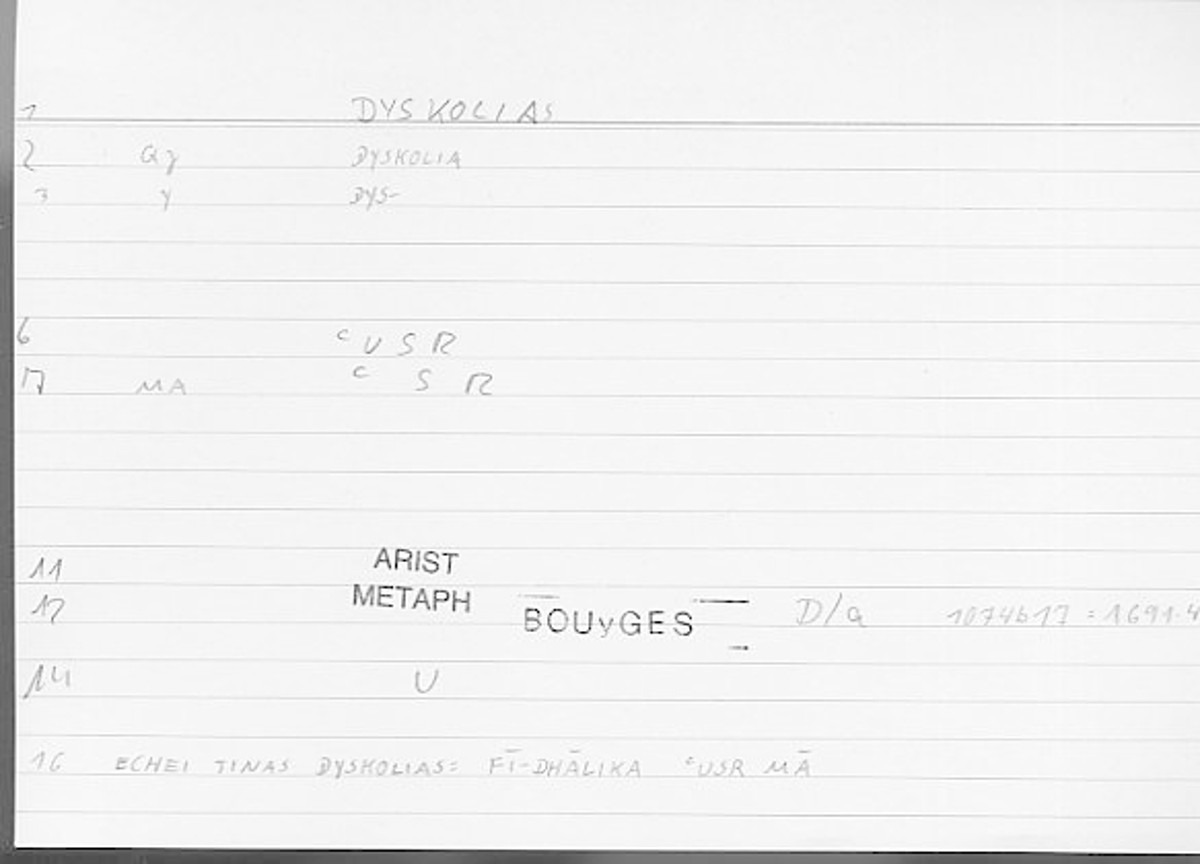 1 DYSKOLIAS
2 Qy DYSKOLIA
3 y DYS-
6 ᶜUSR
17 MA ᶜ S R
11 ARIST
12 METAPH BOUyGES D/a 1074b17 = 1691.4
14 U
16 ECHEI TINAS DYSKOLIAS = FĪ-DHĀLIKA ᶜUSR MĀ